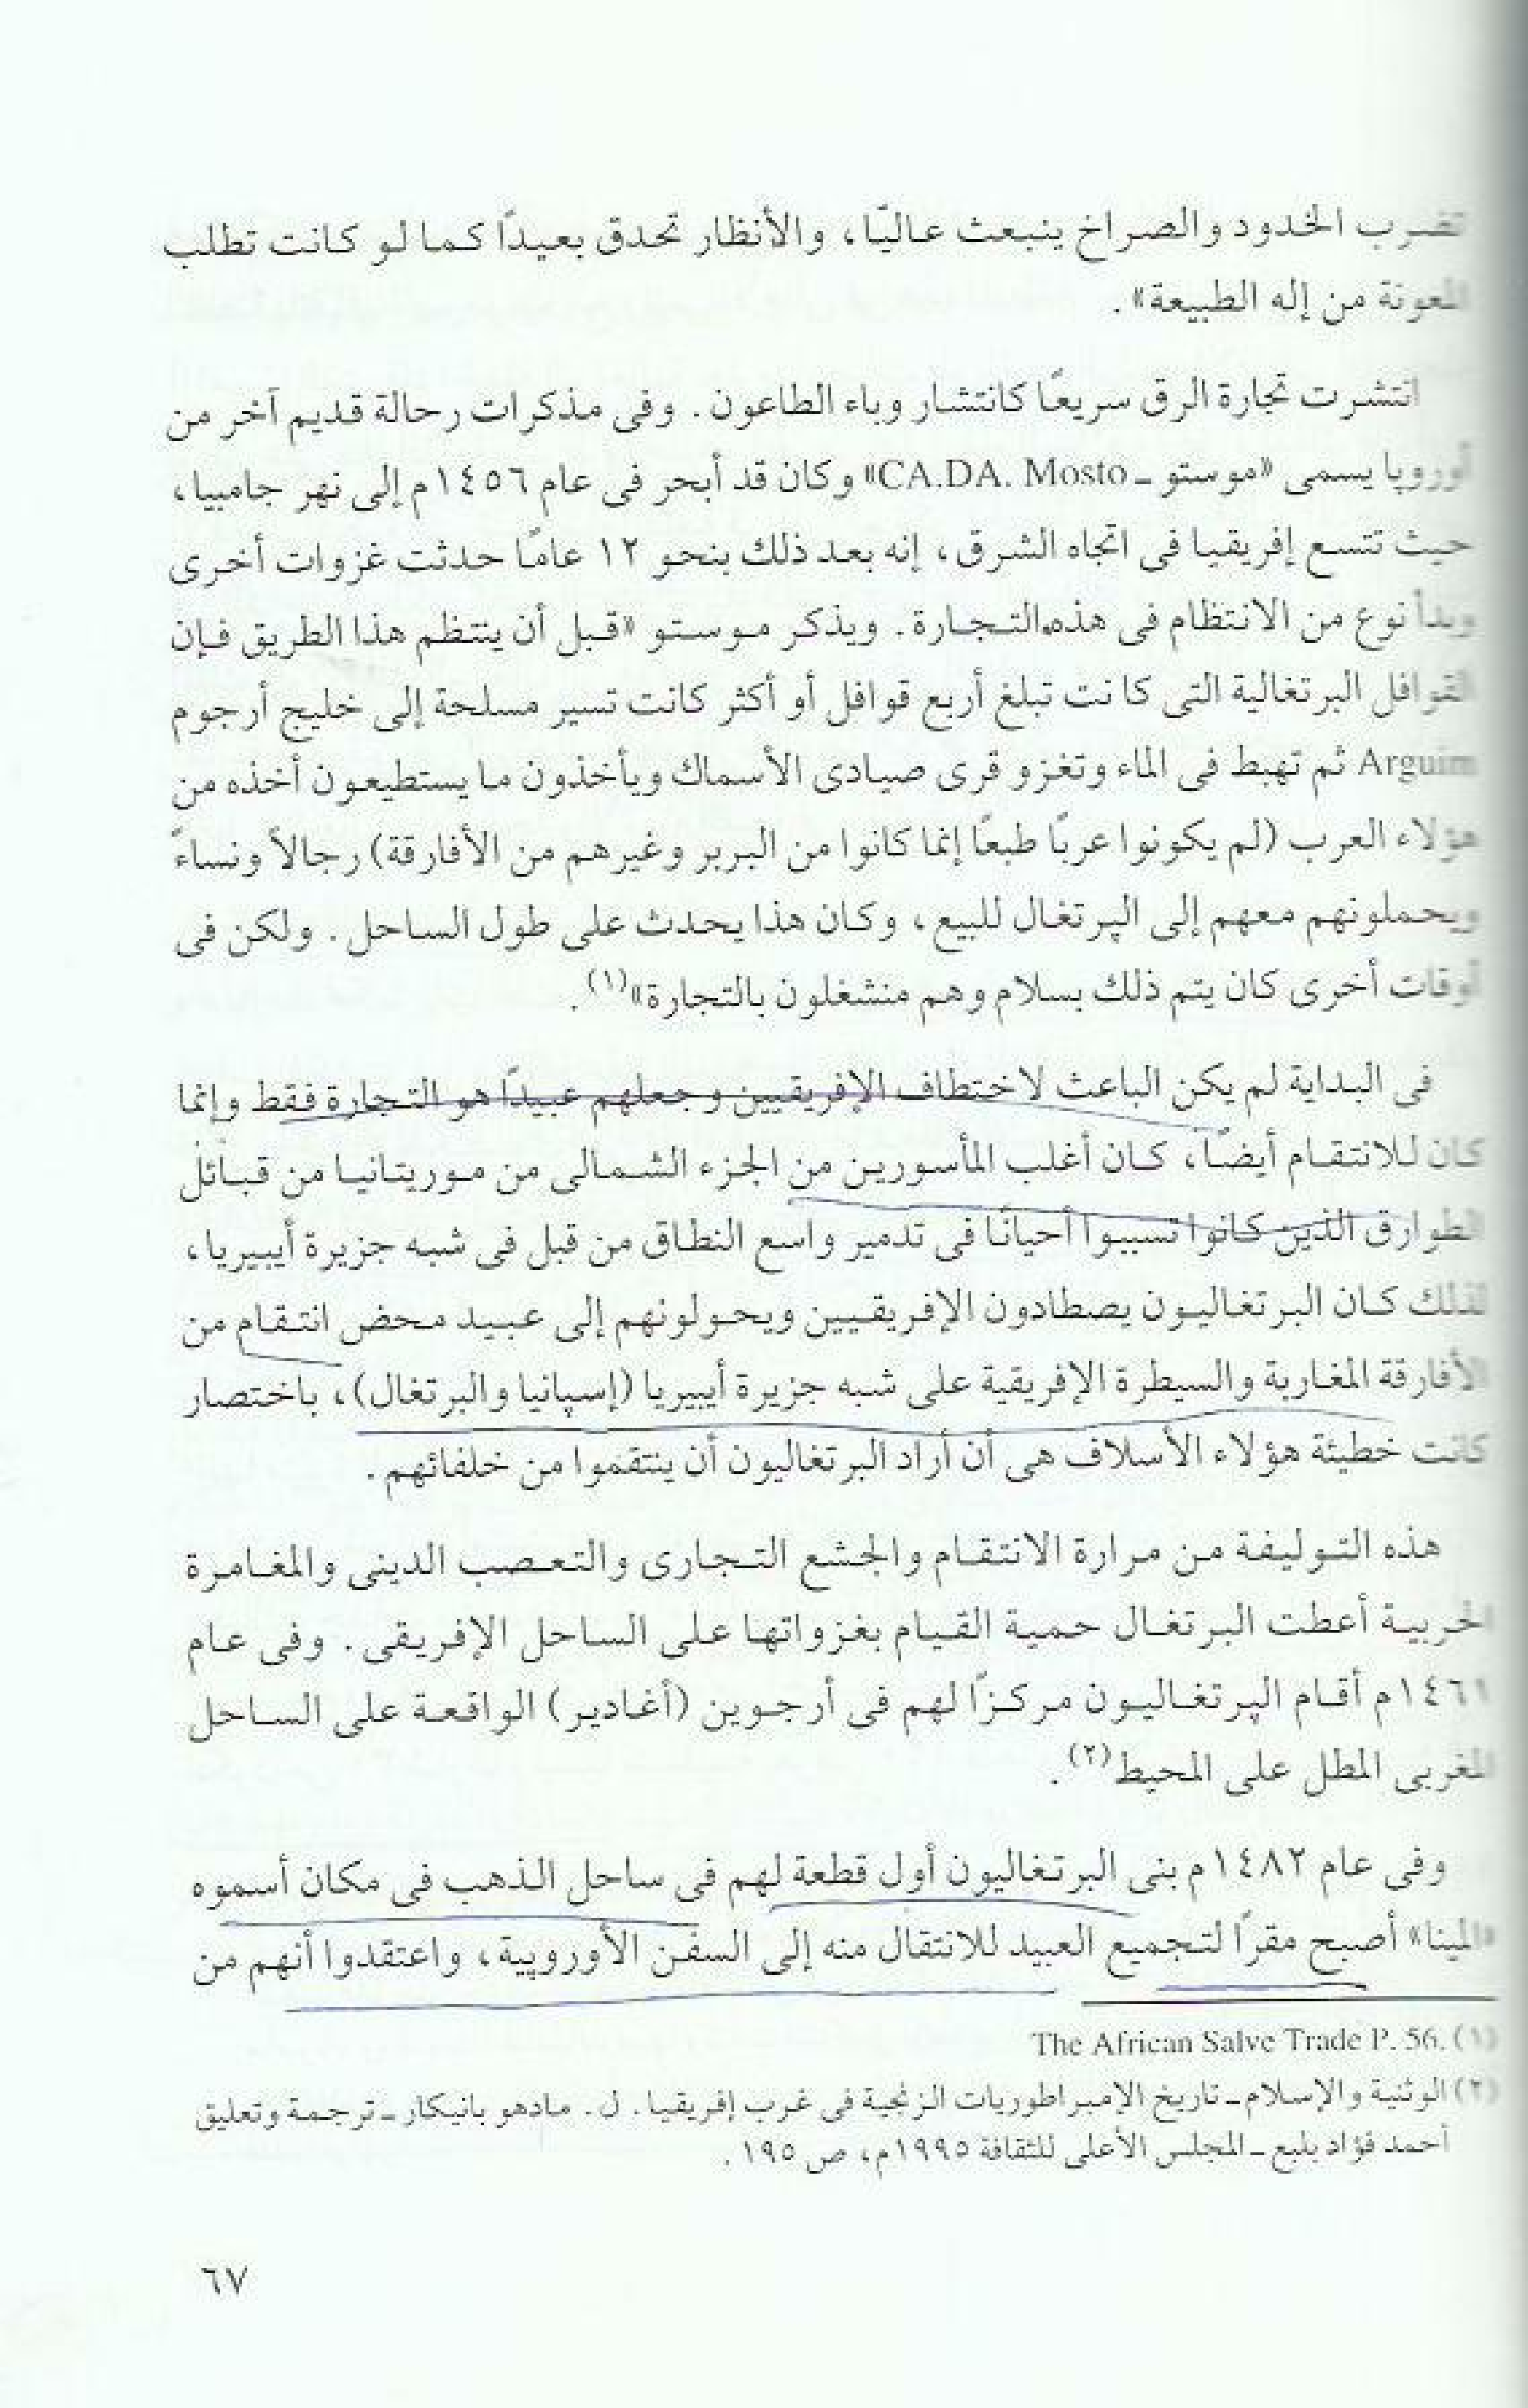 تضرب الخدود والصراخ ينبعث عاليًا، والأنظار تحدق بعيدًا كما لو كانت تطلب
المعونة من إله الطبيعة».
انتشرت تجارة الرق سريعًا كانتشار وباء الطاعون. وفى مذكرات رحالة قديم آخر من
أوروپا يسمى «موستو ـ CA.DA. Mosto» وكان قد أبحر فى عام ١٤٥٦م إلى نهر جامبيا،
حيث تتسع إفريقيا فى اتجاه الشرق، إنه بعد ذلك بنحو ١٢ عامًا حدثت غزوات أخرى
وبدأ نوع من الانتظام فى هذه التجارة. ويذكر موستو «قبل أن ينتظم هذا الطريق فإن
القوافل البرتغالية التى كانت تبلغ أربع قوافل أو أكثر كانت تسير مسلحة إلى خليج أرجوم
Arguim ثم تهبط فى الماء وتغزو قرى صيادى الأسماك ويأخذون ما يستطيعون أخذه من
هؤلاء العرب (لم يكونوا عربًا طبعًا إنما كانوا من البربر وغيرهم من الأفارقة) رجالاً ونساءً
ويحملونهم معهم إلى الپرتغال للبيع، وكان هذا يحدث على طول الساحل. ولكن فى
أوقات أخرى كان يتم ذلك بسلام وهم منشغلون بالتجارة»(١).
فى البداية لم يكن الباعث لاختطاف الإفريقيين وجعلهم عبيدًا هو التجارة فقط وإنما
كان للانتقام أيضًا، كان أغلب المأسورين من الجزء الشمالى من موريتانيا من قبائل
الطوارق الذين كانوا تسببوا أحيانًا فى تدمير واسع النطاق من قبل فى شبه جزيرة أيبيريا،
لذلك كان البرتغاليون يصطادون الإفريقيين ويحولونهم إلى عبيد محض انتقام من
الأفارقة المغاربة والسيطرة الإفريقية على شبه جزيرة أيبيريا (إسپانيا والبرتغال)، باختصار
كانت خطيئة هؤلاء الأسلاف هى أن أراد البرتغاليون أن ينتقموا من خلفائهم.
هذه التوليفة من مرارة الانتقام والجشع التجارى والتعصب الدينى والمغامرة
الحربية أعطت البرتغال حمية القيام بغزواتها على الساحل الإفريقى. وفى عام
١٤٦١م أقام الپرتغاليون مركزًا لهم فى أرجوين (أغادير) الواقعة على الساحل
المغربى المطل على المحيط(٢).
وفى عام ١٤٨٢م بنى البرتغاليون أول قطعة لهم فى ساحل الذهب فى مكان أسموه
«المينا» أصبح مقرًا لتجميع العبيد للانتقال منه إلى السفن الأوروپية، واعتقدوا أنهم من
(١) The African Salve Trade P. 56.
(٢) الوثنية والإسلام ـ تاريخ الإمبراطوريات الزنجية فى غرب إفريقيا. ل. مادهو بانيكار ـ ترجمة وتعليق
أحمد فؤاد بلبع ـ المجلس الأعلى للثقافة ١٩٩٥م، ص ١٩٥.
٦٧